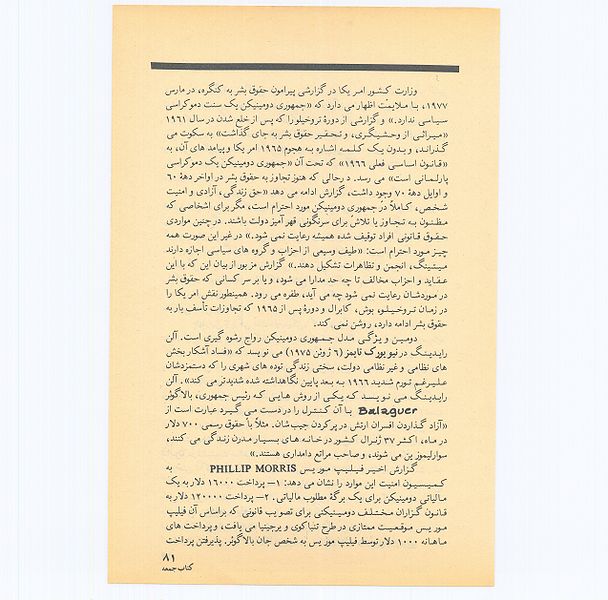 وزارت کشور امریکا در گزارشی پیرامون حقوق بشر به کنگره، در مارس
۱۹۷۷، با ملایمت اظهار می دارد که «جمهوری دومینیکن یک سنت دموکراسی
سیاسی ندارد.» و گزارشی از دورهٔ تروخیلو را که پس از خلع شدن در سال ۱۹۶۱
«میراثی از وحشیگری، و تحقیر حقوق بشر به جای گذاشت» به سکوت می
گذراند، و بدون یک کلمه اشاره به هجوم ۱۹۶۵ امریکا و پیامدهای آن، به
«قانون اساسی فعلی ۱۹۶۶» که تحت آن «جمهوری دومینیکن یک دموکراسی
پارلمانی است» می رسد. در حالی که هنوز تجاوز به حقوق بشر در اواخر دههٔ ۶۰
و اوایل دههٔ ۷۰ وجود داشت، گزارش ادامه می دهد «حق زندگی، آزادی و امنیت
شخص، کاملاً در جمهوری دومینیکن مورد احترام است، مگر برای اشخاصی که
مظنون به تجاوز یا تلاش برای سرنگونی قهرآمیز دولت باشند. در چنین مواردی
حقوق قانونی افراد توقیف شده همیشه رعایت نمی شود.» در غیر این صورت همه
چیز مورد احترام است: «طیف وسیعی از احزاب و گروه های سیاسی اجازه دارند
میتینگ، انجمن و تظاهرات تشکیل دهند.» گزارش مزبور از بیان این که با این
عقاید و احزاب مخالف تا چه حد مدارا می شود، و یا بر سر کسانی که حقوق بشر
در موردشان رعایت نمی شود چه می آید، طفره می رود. همینطور نقش امریکا را
در زمان تروخیلو، بوش، کابرال و دورهٔ پس از ۱۹۶۵ که تجاوزات تأسف بار به
حقوق بشر ادامه دارد، روشن نمی کند.
دومین ویژگی مدل جمهوری دومینیکن رواج رشوه گیری است. آلن
رایدینگ در نیویورک تایمز (۶ ژوئن ۱۹۷۵) می نویسد که «فساد آشکار بخش
های نظامی و غیر نظامی دولت، سختی زندگی توده های شهری را که دستمزدشان
علیرغم تورم شدید ۱۹۶۶ به بعد پایین نگاهداشته شده شدیدتر می کند». آلن
رایدینگ می نویسد که یکی از روش هایی که رئیس جمهوری، بالاگوئر
Balaguer با آن کنترل را در دست می گیرد عبارت است از
«آزاد گذاردن افسران ارتش در پر کردن جیب شان. مثلاً با حقوق رسمی ۷۰۰ دلار
در ماه، اکثر ۳۷ ژنرال کشور در خانه های بسیار مدرن زندگی می کنند،
سوار لیموزین می شوند، و صاحب مراتع دامداری هستند.»
گزارش اخیر فیلیپ موریس PHILLIP MORRIS به
کمیسیون امنیت این موارد را نشان می دهد: ۱– پرداخت ۱۶۰۰۰ دلار به یک
مالیاتی دومینیکن برای یک برگهٔ مطلوب مالیاتی. ۲– پرداخت ۱۲۰۰۰۰ دلار به
قانون گزاران مختلف دومینیکنی برای تصویب قانونی که براساس آن فیلیپ
موریس موقعیت ممتازی در طرح تنباکوی ویرجینیا می یافت، و پرداخت های
ماهانه ۱۰۰۰ دلار توسط فیلیپ موریس به شخص جان بالاگوئر. پذیرفتن پرداخت
۸۱
کتاب جمعه